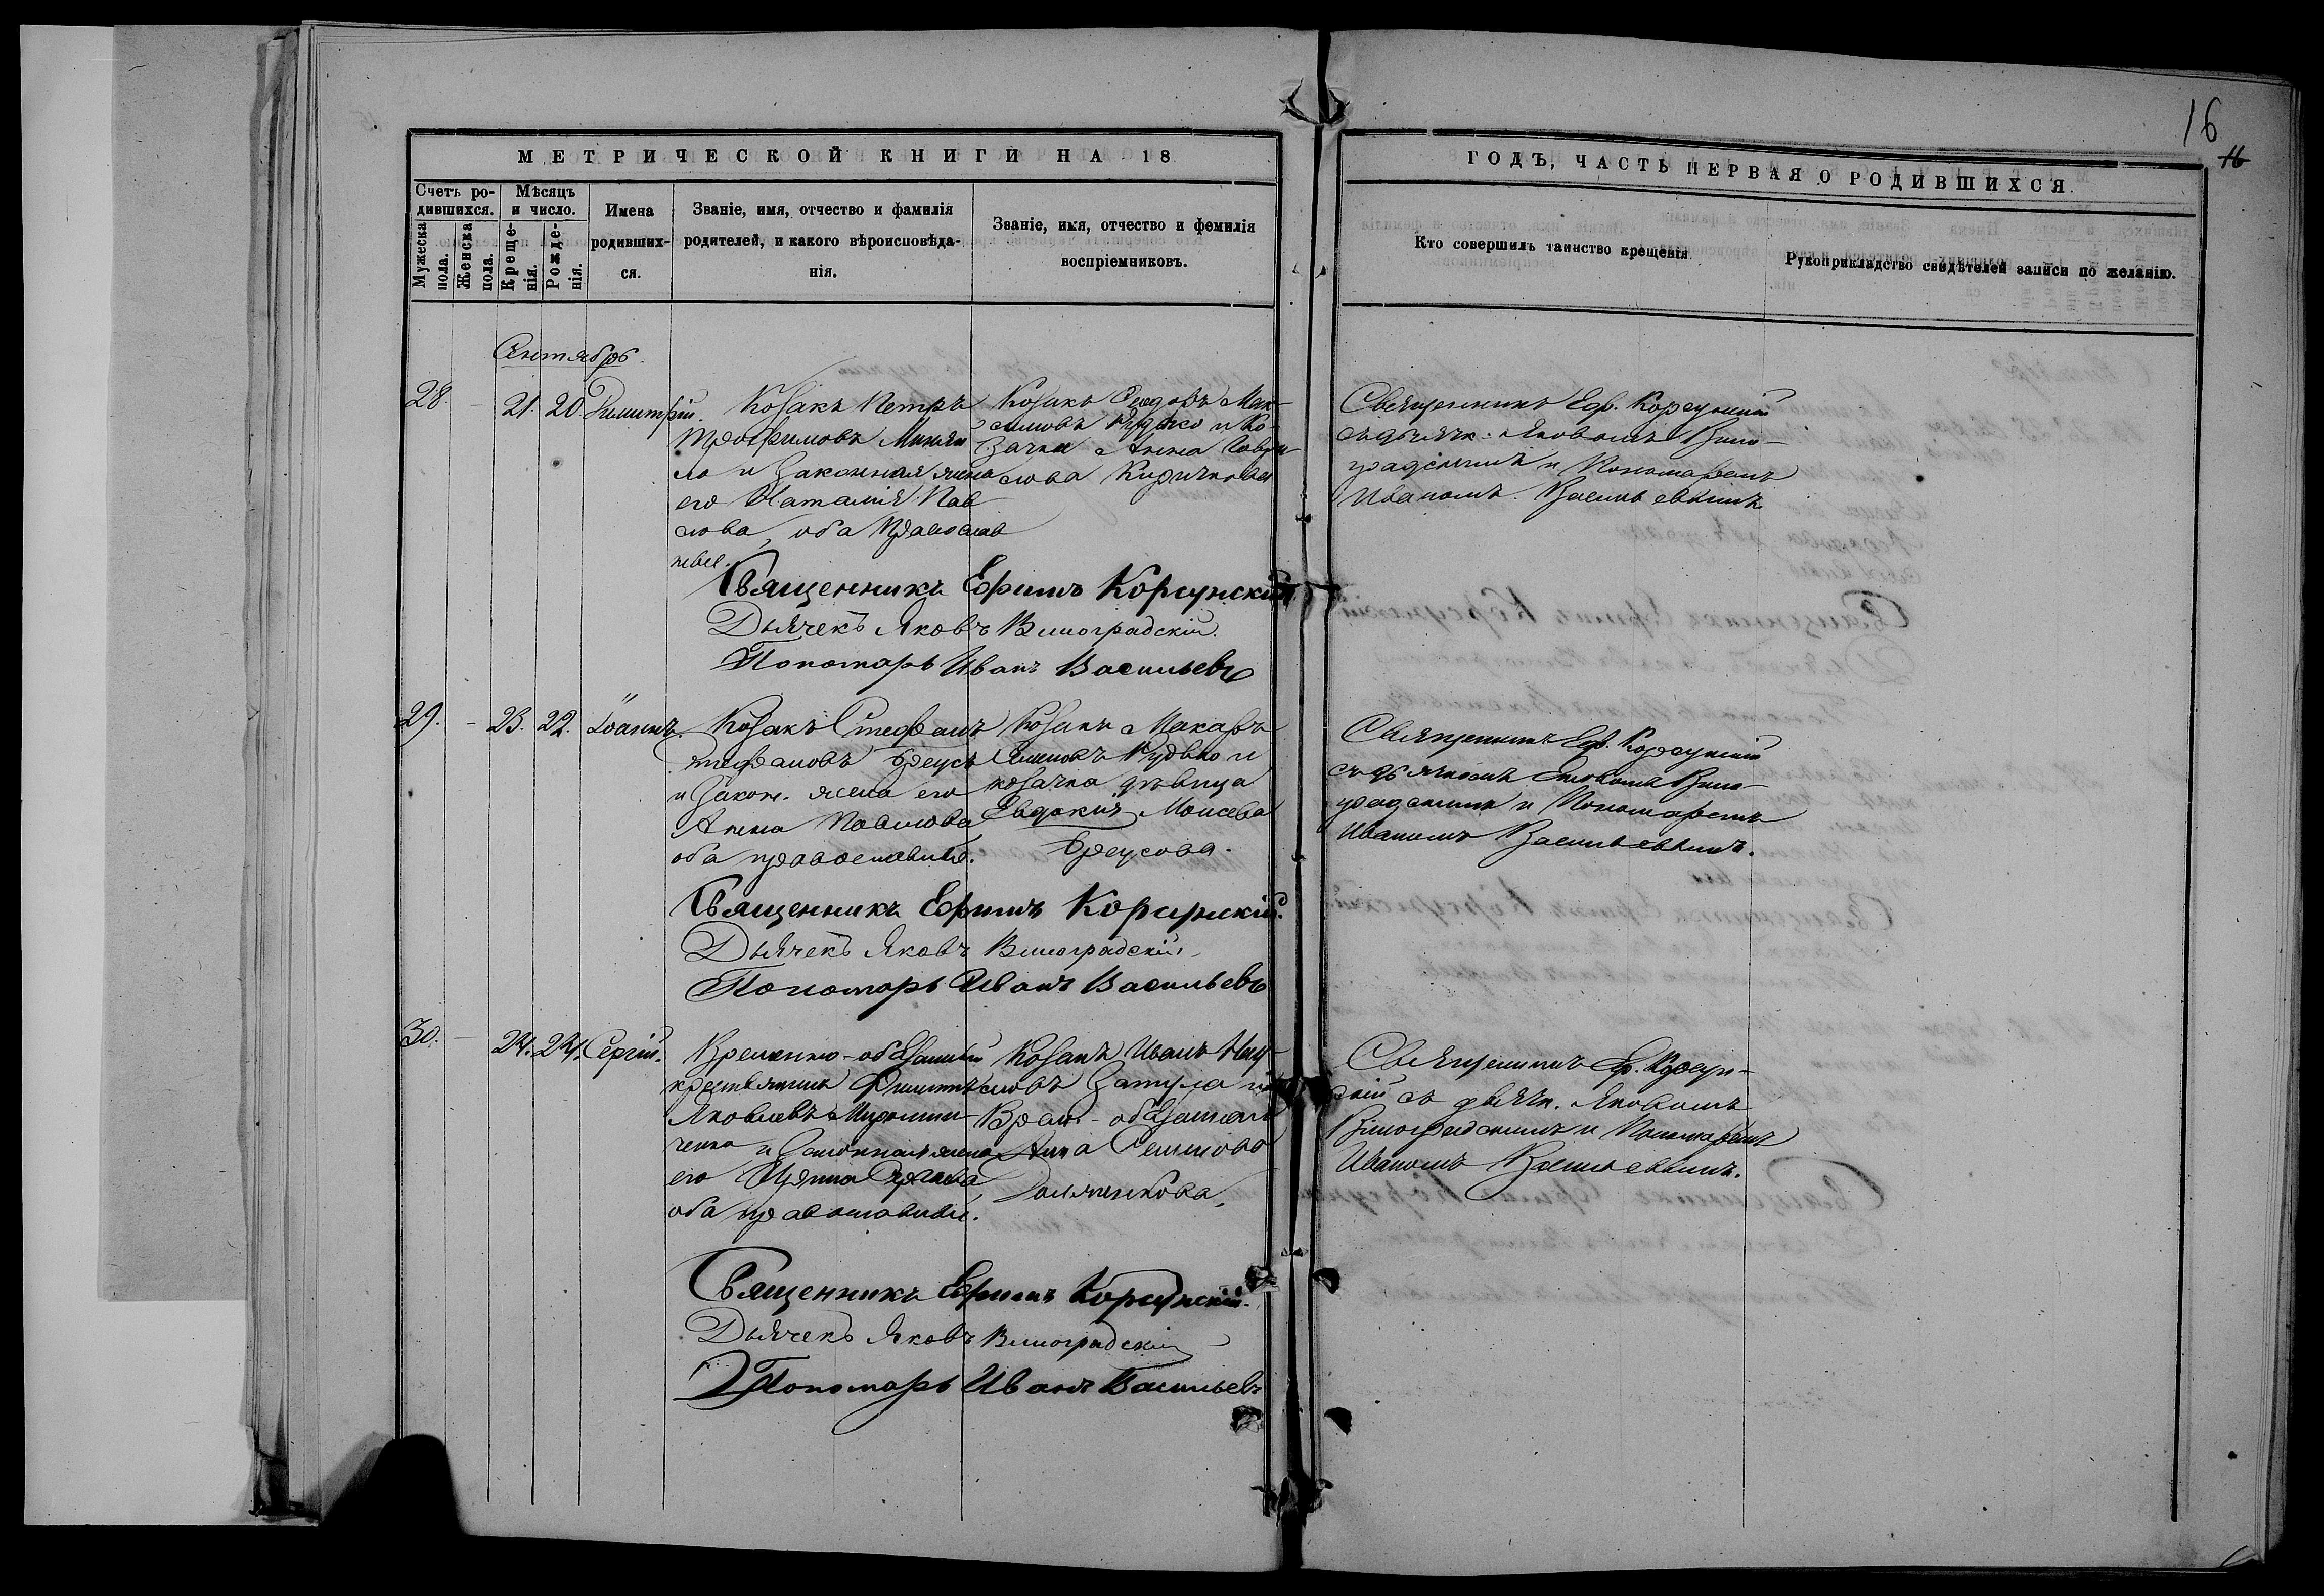 16
16
МЕТРИЧЕСКОЙ КНИГИ НА 18
ГОДЪ, ЧАСТЬ ПЕРВАЯ О РОДИВШИХСЯ.
Счетъ ро-
дившихся.
Мужеска
пола.
Женска
пола.
Мѣсяцъ
и число.
Креще-
нія.
Рожде-
нія.
Имена
родивших-
ся.
Званіе, имя, отчество и фамилія
родителей, и какого вѣроисповѣда-
нія.
Званіе, имя, отчество и фемилія
воспріемниковъ.
Кто совершилъ таинство крещенія.
Рукоприкладство свидѣтелей записи по желанію.
Сентябрь.
28. - 21. 20. Димитрій.
Козакъ Петръ
Трофимовъ
ло и законная жена
его Наталія Пав
лова, оба православ
ные.
Козакъ Феодоръ Мак-
симовъ и ко-
зачка Анна Гаври
лова
Священникъ Еф. Корсунскій
съ дьячк. Яковомъ Вино-
градскимъ и Пономаремъ
Иваномъ Васильевымъ.
Священникъ Ефимъ Корсунскій
Дьячекъ Яковъ Виноградскій.
Пономарь Иванъ Васильевъ
29. - 23. 22. Іоаннъ.
Козакъ Стефанъ
Стефановъ Бреусъ
и закон. жена его
Анна Павлова
оба православные.
Козакъ Макаръ
Семеновъ Рудько и
козачка дѣвица
Евдокия Моисеева
Бреусова.
Священникъ Еф. Корсунскій
съ дьячкомъ Яковомъ Вино-
градскимъ и Пономаремъ
Иваномъ Васильевымъ.
Священникъ Ефимъ Корсунскій.
Дьячекъ Яковъ Виноградскій
Пономарь Иванъ Васильевъ
30. - 24. 24. Сергій.
Временно-обязанный
крестьянинъ Филиппъ
Яковлевъ
ченко и законная жена
его Ирина
оба православные.
Козакъ Иванъ
ловъ Затула и
Врем-обязанная
Анна Семенова
Священникъ Еф. Корсун-
скій съ дьячк. Яковомъ
Виноградскимъ и Пономаремъ
Иваномъ Васильевымъ.
Священникъ Ефимъ Корсунскій.
Дьячекъ Яковъ Виноградскій
Пономарь Иванъ Васильевъ